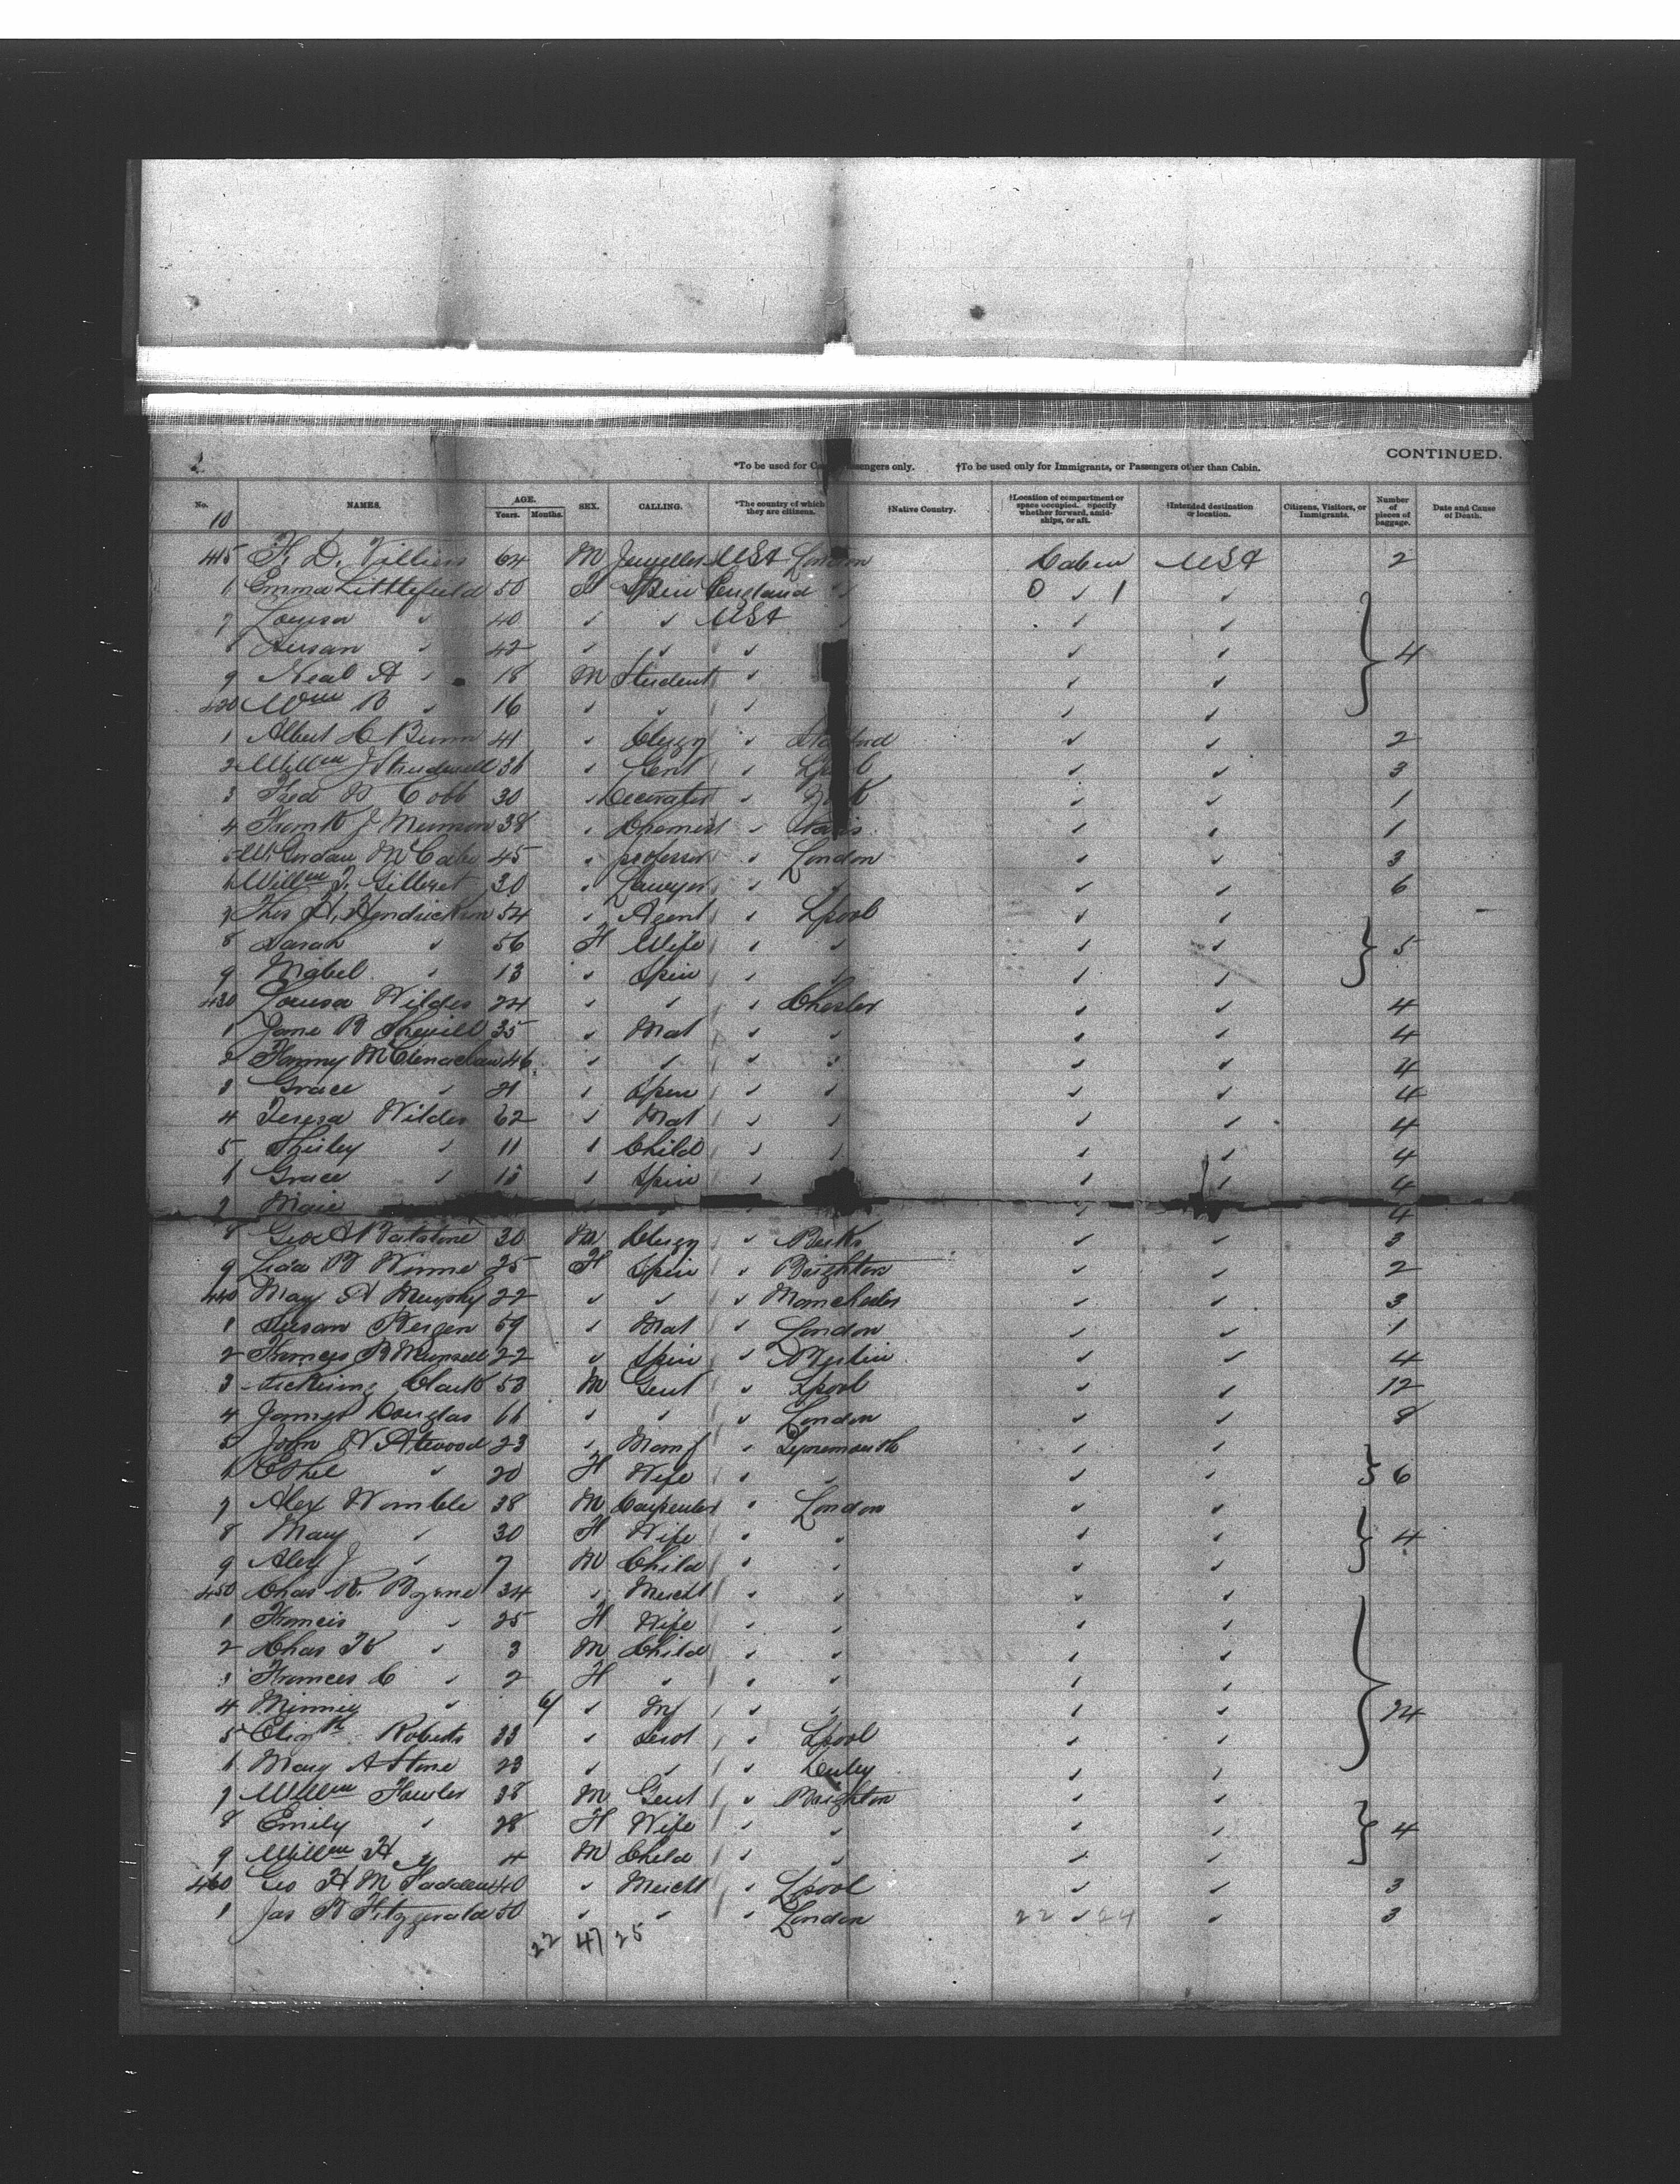 CONTINUED.
*To be used for Ca ssengers only. †To be used only for Immigrants, or Passengers other than Cabin.
No. NAMES. AGE. Years. Months. SEX. CALLING. *The country of which they are citizens. †Native Country. †Location of compartment or space occupied. Specify whether forward, amidships, or aft. †Intended destination or location. Citizens, Visitors, or Immigrants. Number of pieces of baggage. Date and Cause of Death.
10
415 F. D. Villiers 64 M Jeweller USA London Cabin USA 2
6 Emma Littlefield 50 F Spin England " 0 ✓ 1 ✓
7 Louisa " 40 " " USA ✓ ✓
8 Susan " 42 " " " ✓ ✓ 4
9 Neal A " 18 M Student " ✓ ✓
420 Wm B " 16 " " " ✓ ✓
1 Albert C Bunn 41 " Clergy " ✓ ✓ 2
2 Willm J Strudwell 36 " Gent " Lpool ✓ ✓ 3
3 Fred W Cobb 30 " Decorator " York ✓ ✓ 1
4 Frank J 38 " Chemist " Paris ✓ ✓ 1
5 W. Gordan McCabe 45 " professor " London ✓ ✓ 3
6 Willm T. 30 " Lawyer " " ✓ ✓ 6
7 Thos H. Hendrickson 54 " Agent " Lpool ✓ ✓
8 Sarah " 56 F Wife " " ✓ ✓ 5
9 Mabel " 13 " Spin " " ✓ ✓
430 Louisa Wildes 24 " " " Chester ✓ ✓ 4
1 Jane B 35 " Mat " " ✓ ✓ 4
2 Fanny McClenachan 46 " " " " ✓ ✓ 4
3 Grace " 21 " Spin " " ✓ ✓ 4
4 Teresa Wildes 62 " Mat " " ✓ ✓ 4
5 Shirley " 11 " Child " " ✓ ✓ 4
6 Grace " 15 " Spin " ✓ ✓ 4
7 Marie ✓ 4
8 Geo A 30 M Clergy " Berks ✓ ✓ 3
9 Lida B Winne 25 F Spin " Brighton ✓ ✓ 2
440 Mary A Murphy 22 " " " Manchester ✓ ✓ 3
1 Susan Bergen 59 " Mat " London ✓ ✓ 1
2 Frances B Munsell 22 " Spin " ✓ ✓ 4
3 Pickering Clark 53 M Gent " Lpool ✓ ✓ 12
4 James Douglas 66 " " " London ✓ ✓ 8
5 John W Atwood 23 " Manf " Tynemouth ✓ ✓
6 Ethel " 20 F Wife " " ✓ ✓ 6
7 Alex Womble 38 M Carpenter " London ✓ ✓
8 Mary " 30 F Wife " " ✓ ✓ 4
9 Alex J " 7 M Child " " ✓ ✓
450 Chas R. Byrne 34 " Mercht " " ✓ ✓
1 Francis " 25 F Wife " " ✓ ✓
2 Chas " 3 M Child " " ✓ ✓
3 Frances C " 2 F " " " ✓ ✓
4 Minnie " " Inf " " ✓ ✓ 24
5 Elizth Roberts 33 " Servt " Lpool ✓ ✓
6 Mary A Stone 23 " " " Derby ✓ ✓
7 Willm Fowler 38 M Gent " Brighton ✓ ✓
8 Emily " 28 F Wife " " ✓ ✓ 4
9 Willm H " 4 M Child " " ✓ ✓
460 Geo H McFadden 40 " Mercht " Lpool ✓ ✓ 3
1 Jas B Fitzgerald 50 " " " London 22 ✓ 24 ✓ 3
22 47 25